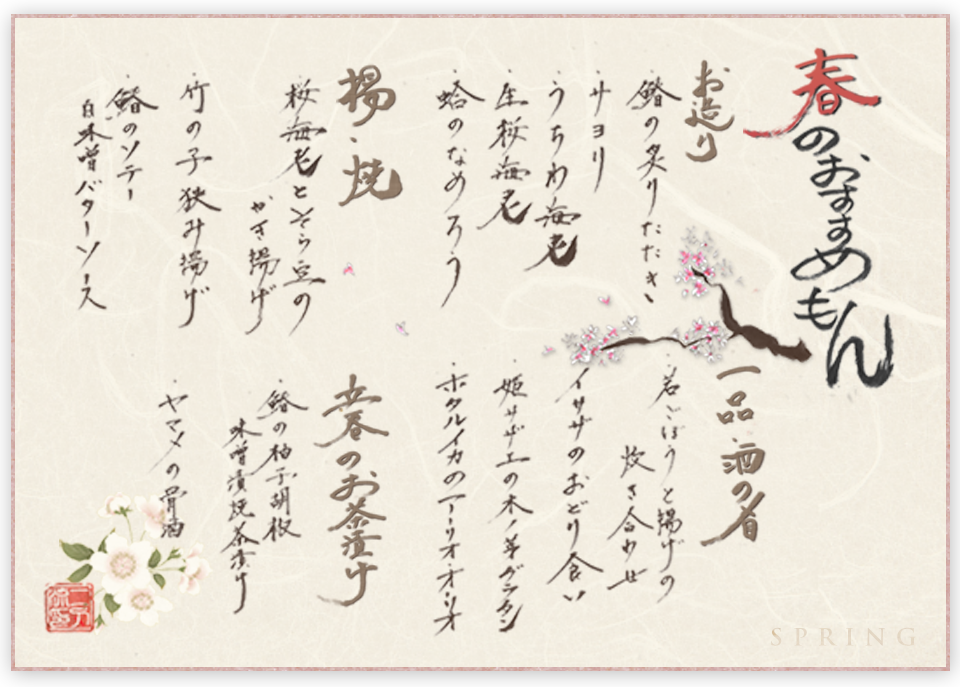 春のおすすめもん
お造り
・鰆の炙りたたき
・サヨリ
・うちわ海老
・生桜海老
・蛤のなめろう
揚・焼
・桜海老とそら豆の
かき揚げ
・竹の子挟み揚げ
・鰆のソテー
白味噌バターソース
一品・酒の肴
・若ごぼうと揚げの
炊き合わせ
・イサザのおどり食い
・姫サザエの木ノ芽グラタン
・ホタルイカのアーリオ・オーリオ
立春のお茶漬け
・鰆の柚子胡椒
味噌漬焼茶漬け
・ヤマメの骨酒
SPRING